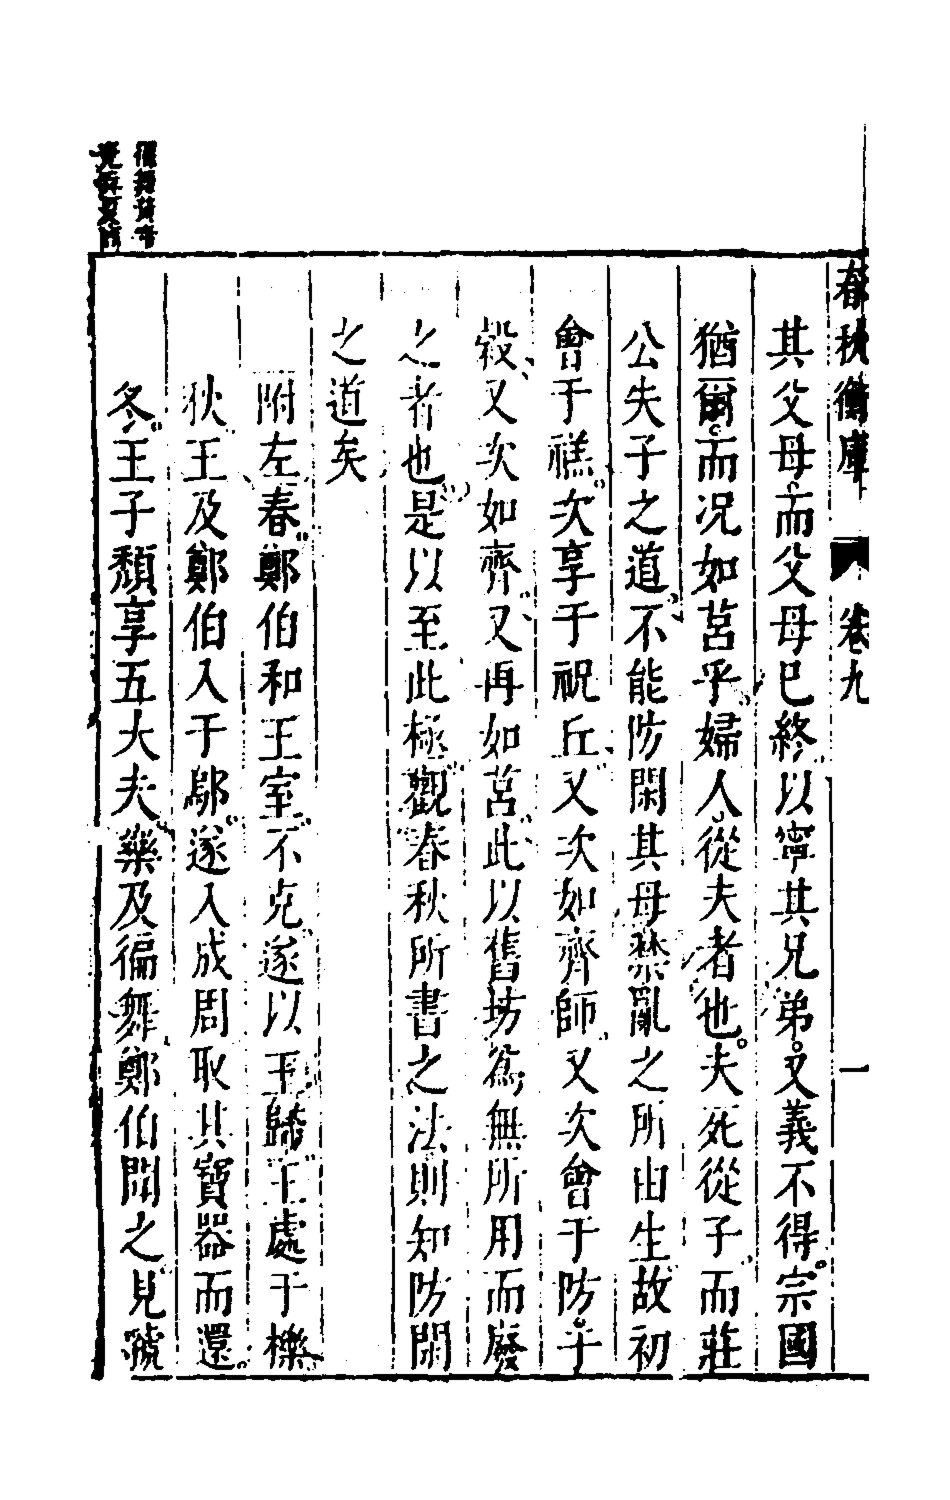 春秋衡庫 卷九 一
其父母而父母巳終以寧其兄弟又義不得宗國
猶爾而况如莒乎婦人從夫者也夫死從子而莊
公失子之道不能防閑其母禁亂之所由生故初
會于禚次享于祝丘又次如齊師又次會于防于
穀又次如齊又再如莒此以舊坊爲無所用而廢
之者也是以至此極觀春秋所書之法則知防閑
之道矣
附左春鄭伯和王室不克遂以王歸王處于櫟
狄王及鄭伯入于鄔遂入成周取其寶器而還
冬王子頹享五大夫樂及徧舞鄭伯聞之見虢